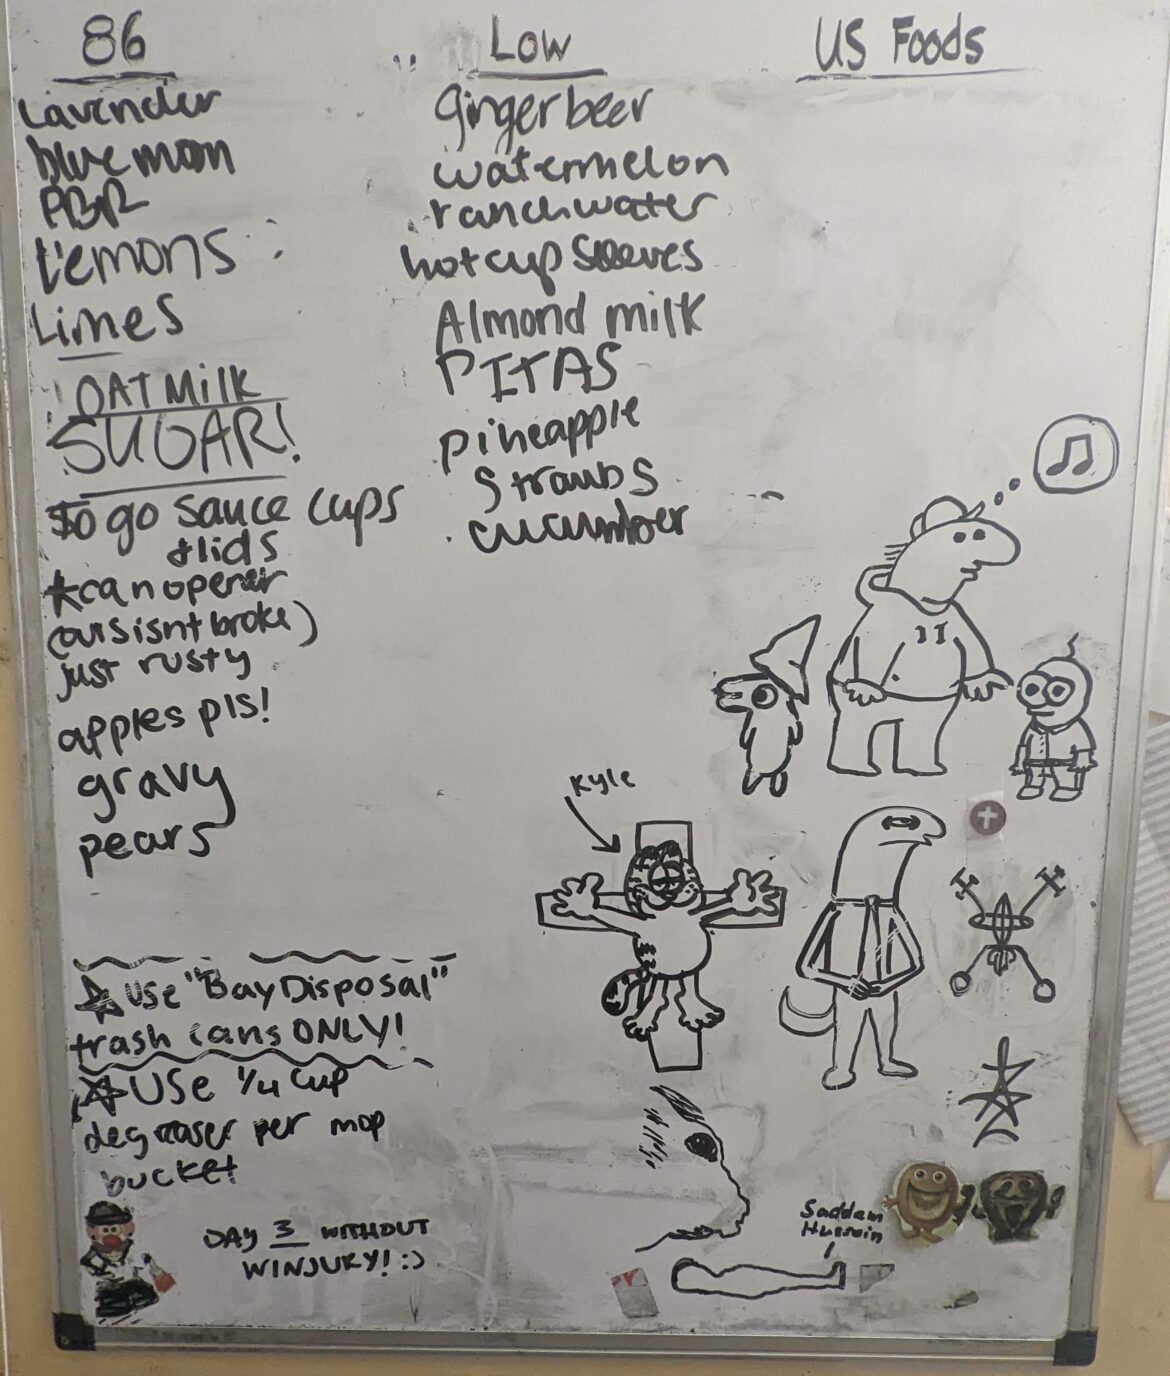 86
Lavender
blue moon
PBR
Lemons
Limes
OAT MILK
SUGAR!
To go sauce cups
+ lids
*can opener
(ours isnt broke)
just rusty
apples pls!
gravy
pears
Low
Ginger beer
watermelon
ranch water
hot cup sleeves
Almond milk
PITAS
pineapple
Strawbs
cucumber
US Foods
Kyle
☆ USE "Bay Disposal"
trash cans ONLY!
☆ USE 1/4 cup
degreaser per mop
bucket
DAY 3 WITHOUT
WINJURY! :)
Saddam
Hussein